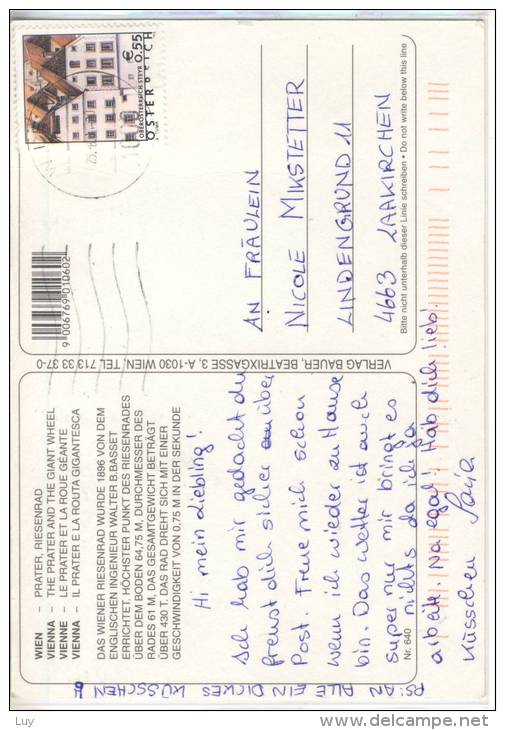 WIEN – PRATER, RIESENRAD
VIENNA – THE PRATER AND THE GIANT WHEEL
VIENNE – LE PRATER ET LA ROUE GÉANTE
VIENNA – IL PRATER E LA ROUTA GIGANTESCA
DAS WIENER RIESENRAD WURDE 1896 VON DEM
ENGLISCHEN INGENIEUR WALTER B.BASSET
ERRICHTET. HÖCHSTER PUNKT DES RIESENRADES
ÜBER DEM BODEN 64,75 M, DURCHMESSER DES
RADES 61 M, DAS GESAMTGEWICHT BETRÄGT
ÜBER 430 T. DAS RAD DREHT SICH MIT EINER
GESCHWINDIGKEIT VON 0,75 M IN DER SEKUNDE
Hi mein Liebling!
Ich hab mir gedacht du
freust dich sicher über
Post. Freue mich schon
wenn ich wieder zu Hause
bin. Das Wetter ist auch
super nur mir bringt es
nichts da ich ja
arbeite. Na egal! Hab dich lieb!
Küsschen
PS: AN ALLE EIN DICKES KÜSSCHEN!
Nr. 640
VERLAG BAUER, BEATRIXGASSE 3, A-1030 WIEN, TEL 713 33 37-0
9 006769 010602
€ 0,55
OBERÖSTERREICH STEYR
ÖSTERREICH
AN FRÄULEIN
NICOLE MIKSTETTER
LINDENGRUND 11
4663 LAAKIRCHEN
Bitte nicht unterhalb dieser Linie schreiben • Do not write below this line
Luy
www.delcampe.net